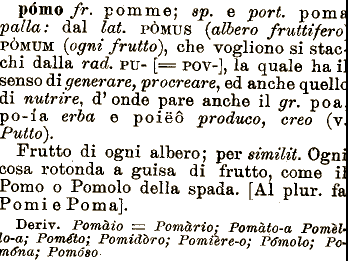 pómo fr. pomme; sp. e port. poma
palla: dal lat. PÒMUS (albero fruttifero)
PÒMUM (ogni frutto), che vogliono si stac-
chi dalla rad. PU- [= POV-], la quale ha il
senso di generare, procreare, ed anche quello
di nutrire, d'onde pare anche il gr. poa,
po-ía erba e poiëô produco, creo (v.
Putto).
Frutto di ogni albero; per similit. Ogni
cosa rotonda a guisa di frutto, come il
Pomo o Pomolo della spada. [Al plur. fa
Pomi e Poma].
Deriv. Pomàio = Pomàrio; Pomàto-a Pomèl-
lo-a; Pométo; Pomidòro; Pomière-o; Pómolo; Po-
móna; Pomóso.